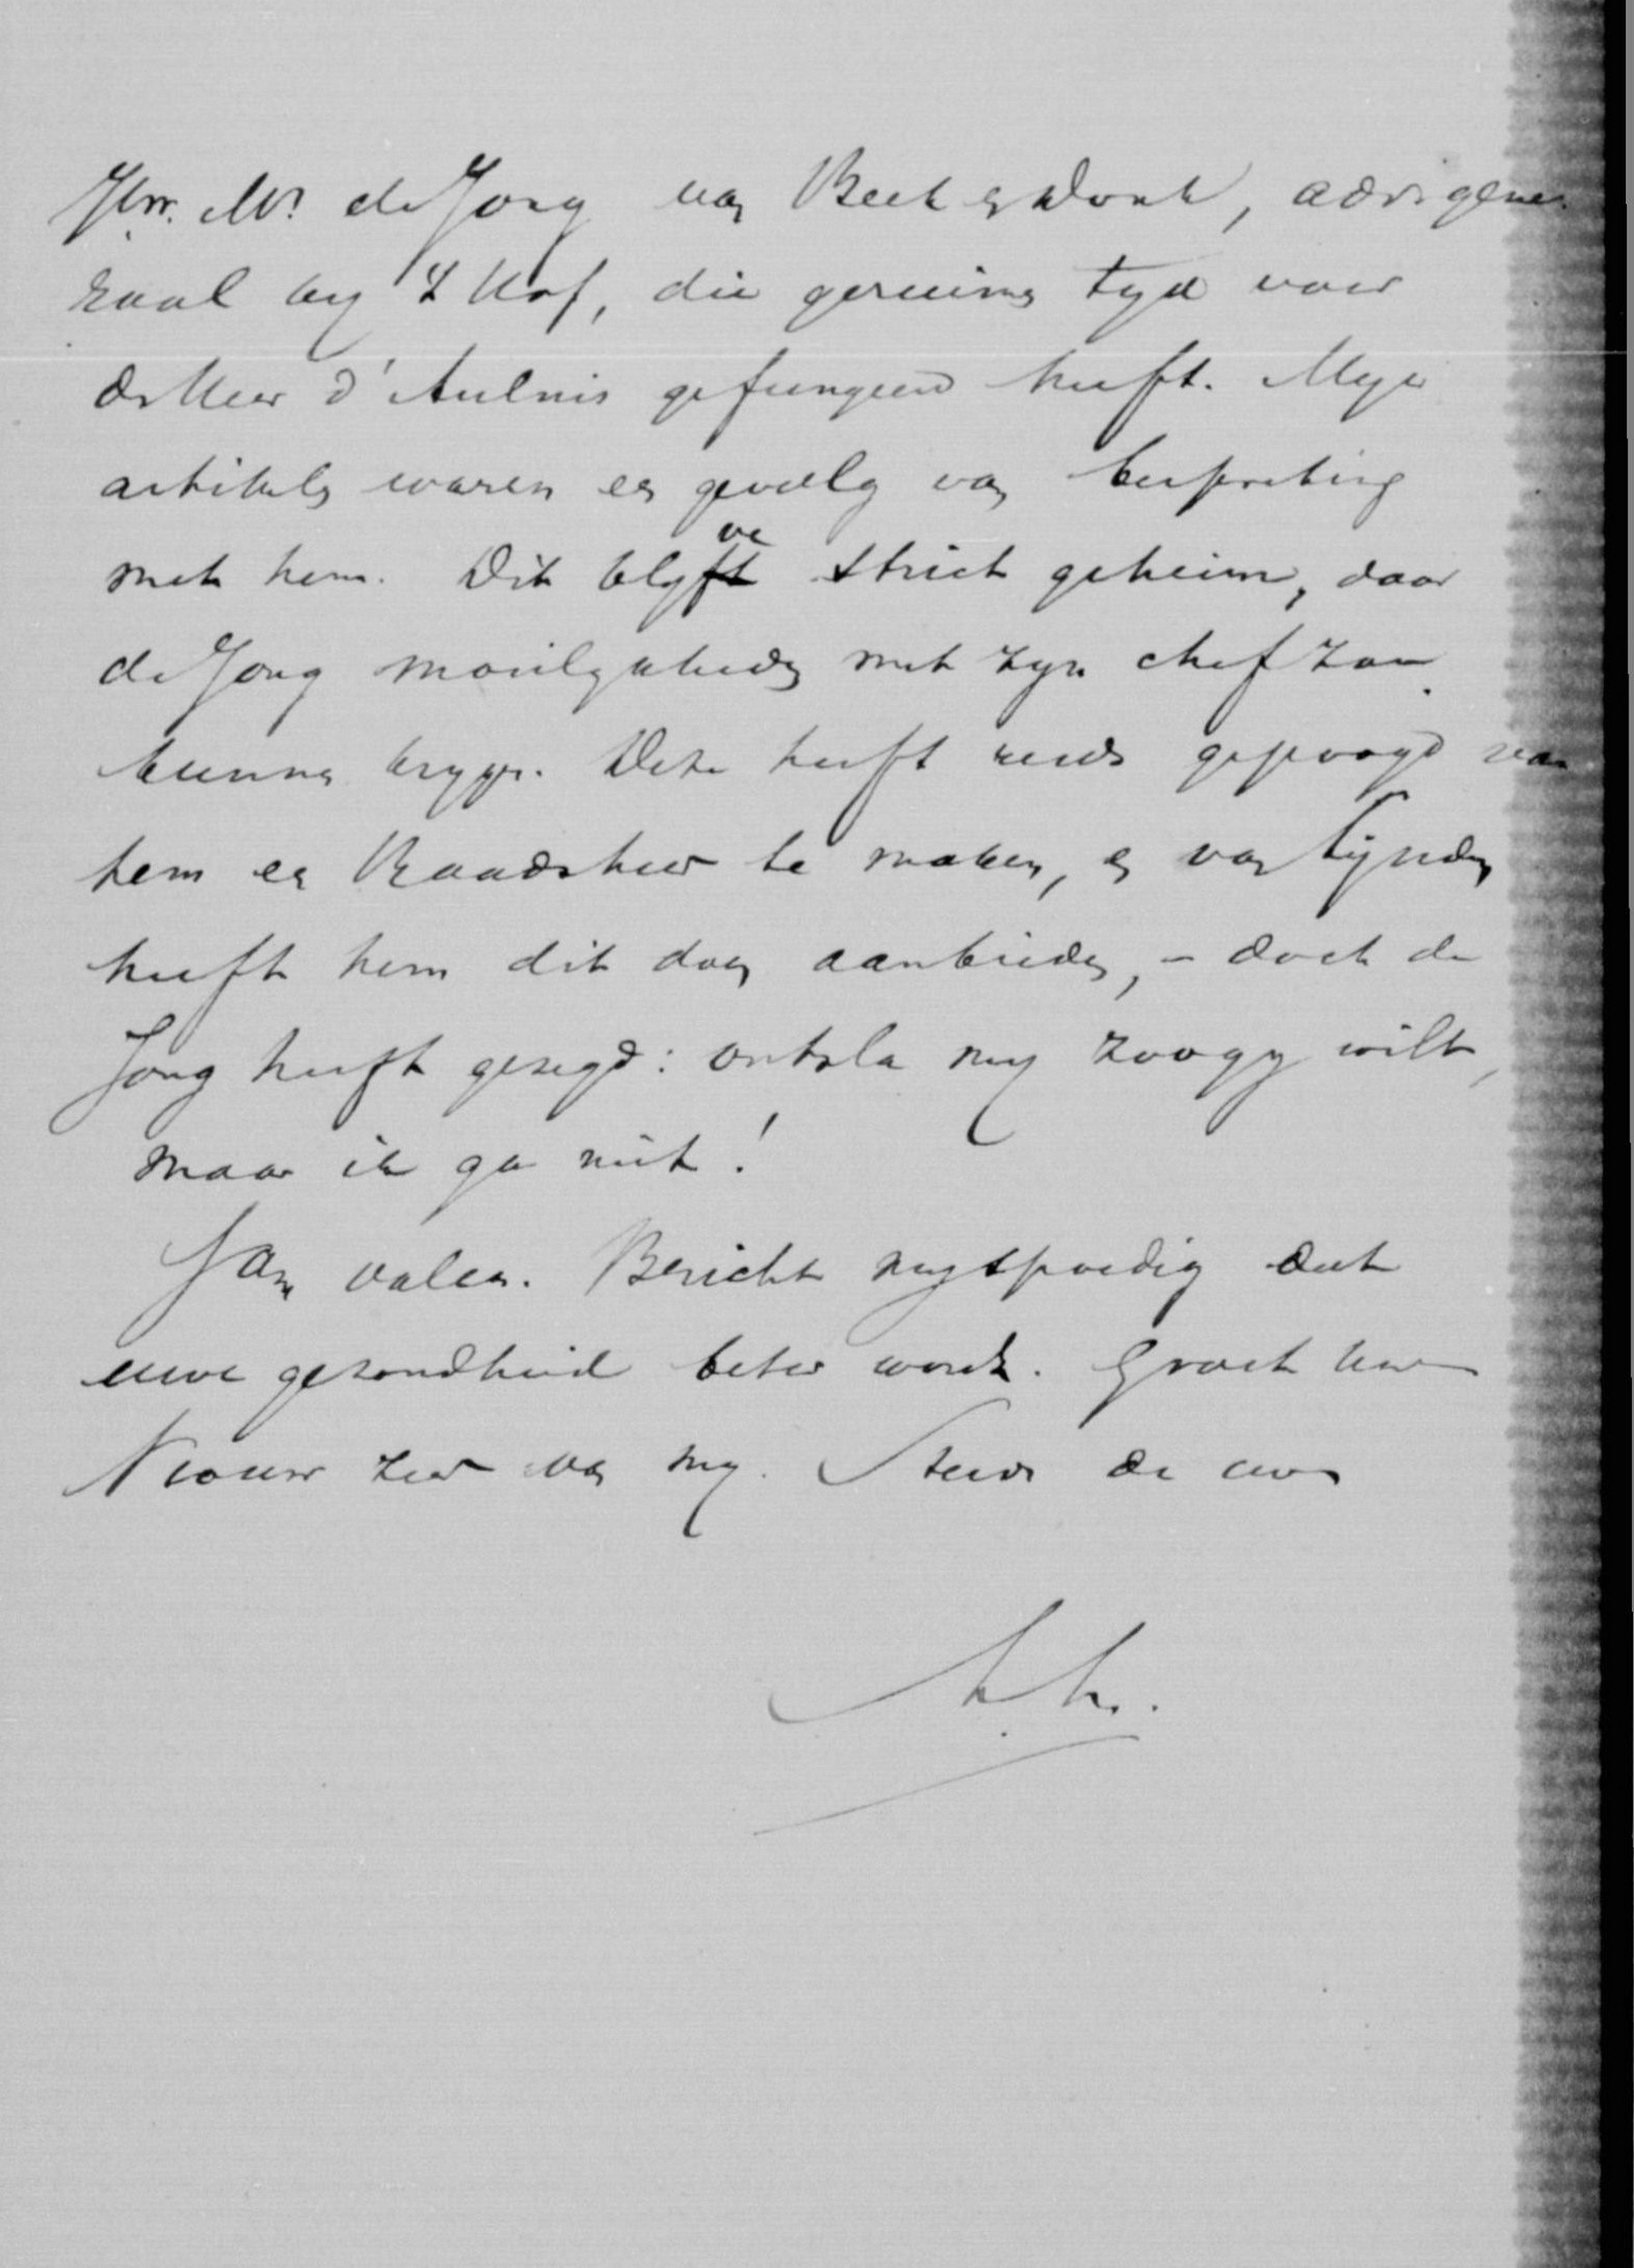 Jhr. Mr. de Jong van Beek en Donk, adv. gene-
raal by 't Hof, die geruime tyd voor
de Heer d'Aulnis gefungeerd heeft. Myn
artikels waren een gevolg van bespreking
met hem. Dit blyve strict geheim, daar
de Jong moeilykheden met zyn chef zou
kunnen krygen. Deze heeft reeds gepoogd van
hem een Raadsheer te maken, en van Lynden
heeft hem dit doen aanbieden, - doch de
Jong heeft gezegd: ontsla my zoo gy wilt,
maar ik ga niet!
Jam vale. Bericht my spoedig dat
uwe gezondheid beter wordt. Groet uw
Vrouw zeer van my. Steeds de uwe